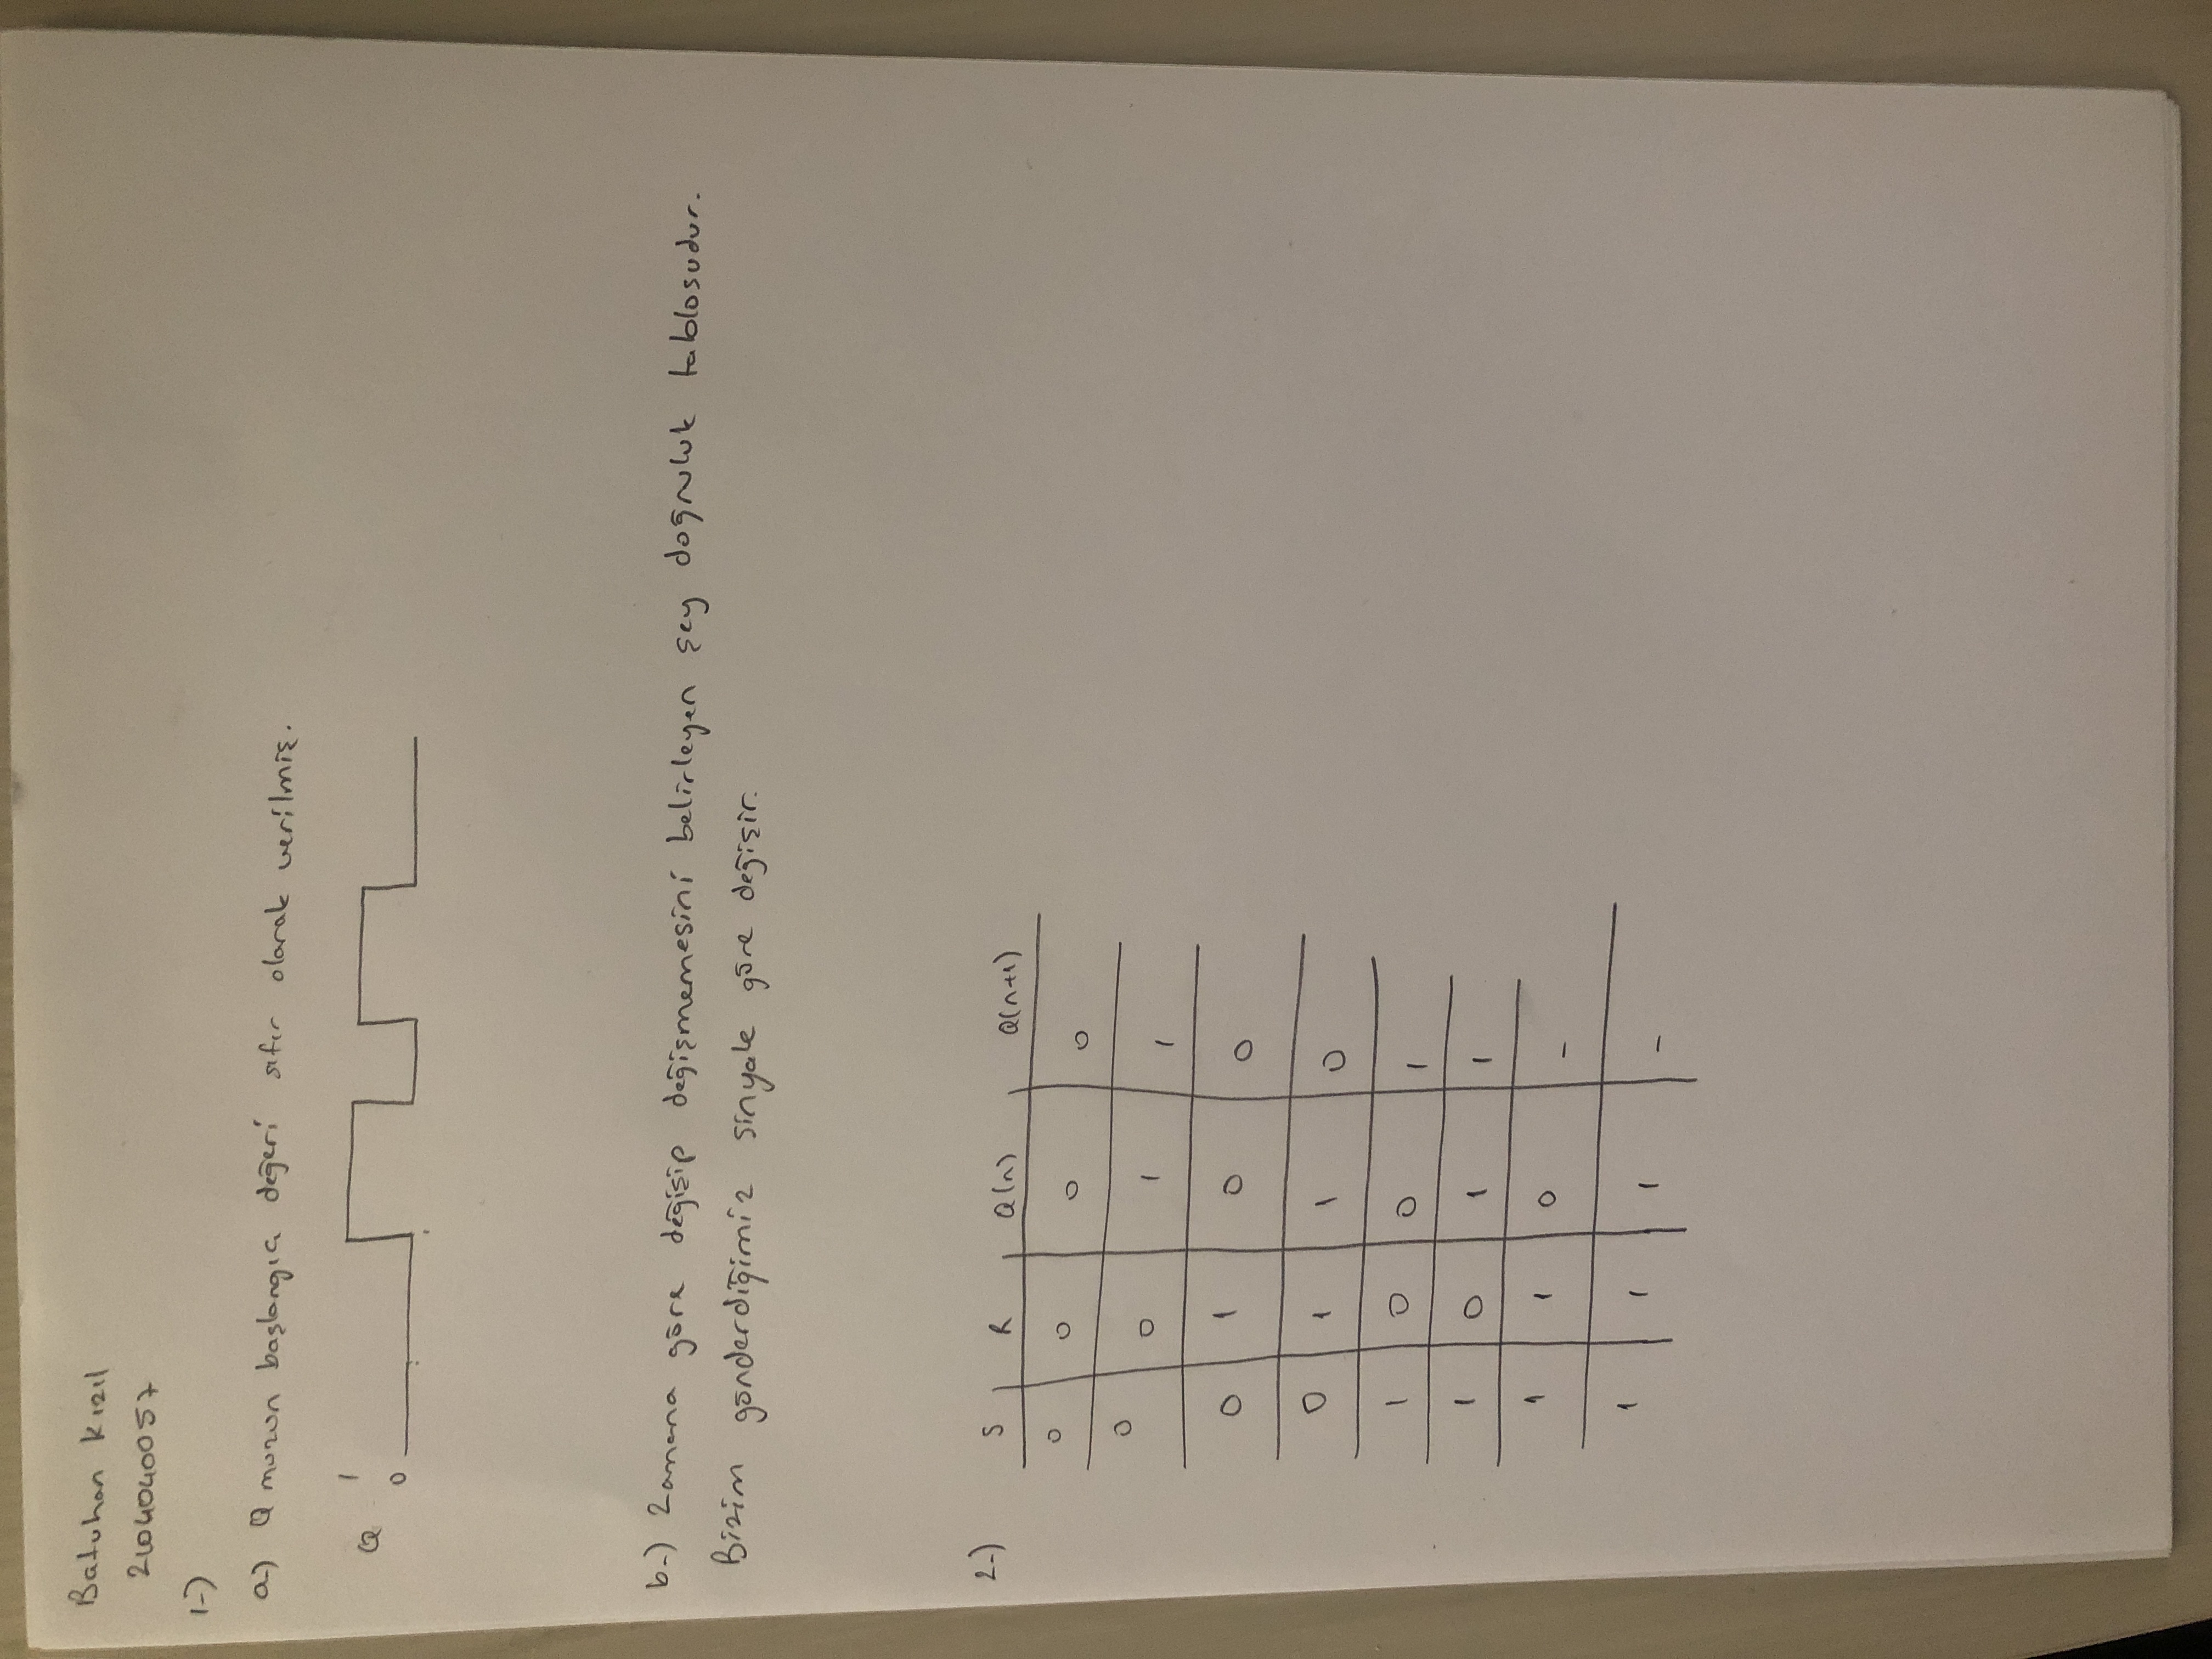 Batuhan Kızıl
2104040057
1-)
a-) Q muzun başlangıcı değeri sıfır olarak verilmiş.
Q 1
0
b-) Zamana göre değişip değişmemesini belirleyen şey doğruluk tablosudur.
Bizim gönderdiğimiz sinyale göre değişir.
2-) S R Q(n) Q(n+1)
0 0 0 0
0 0 1 1
0 1 0 0
0 1 1 0
1 0 0 1
1 0 1 1
1 1 0 -
1 1 1 -